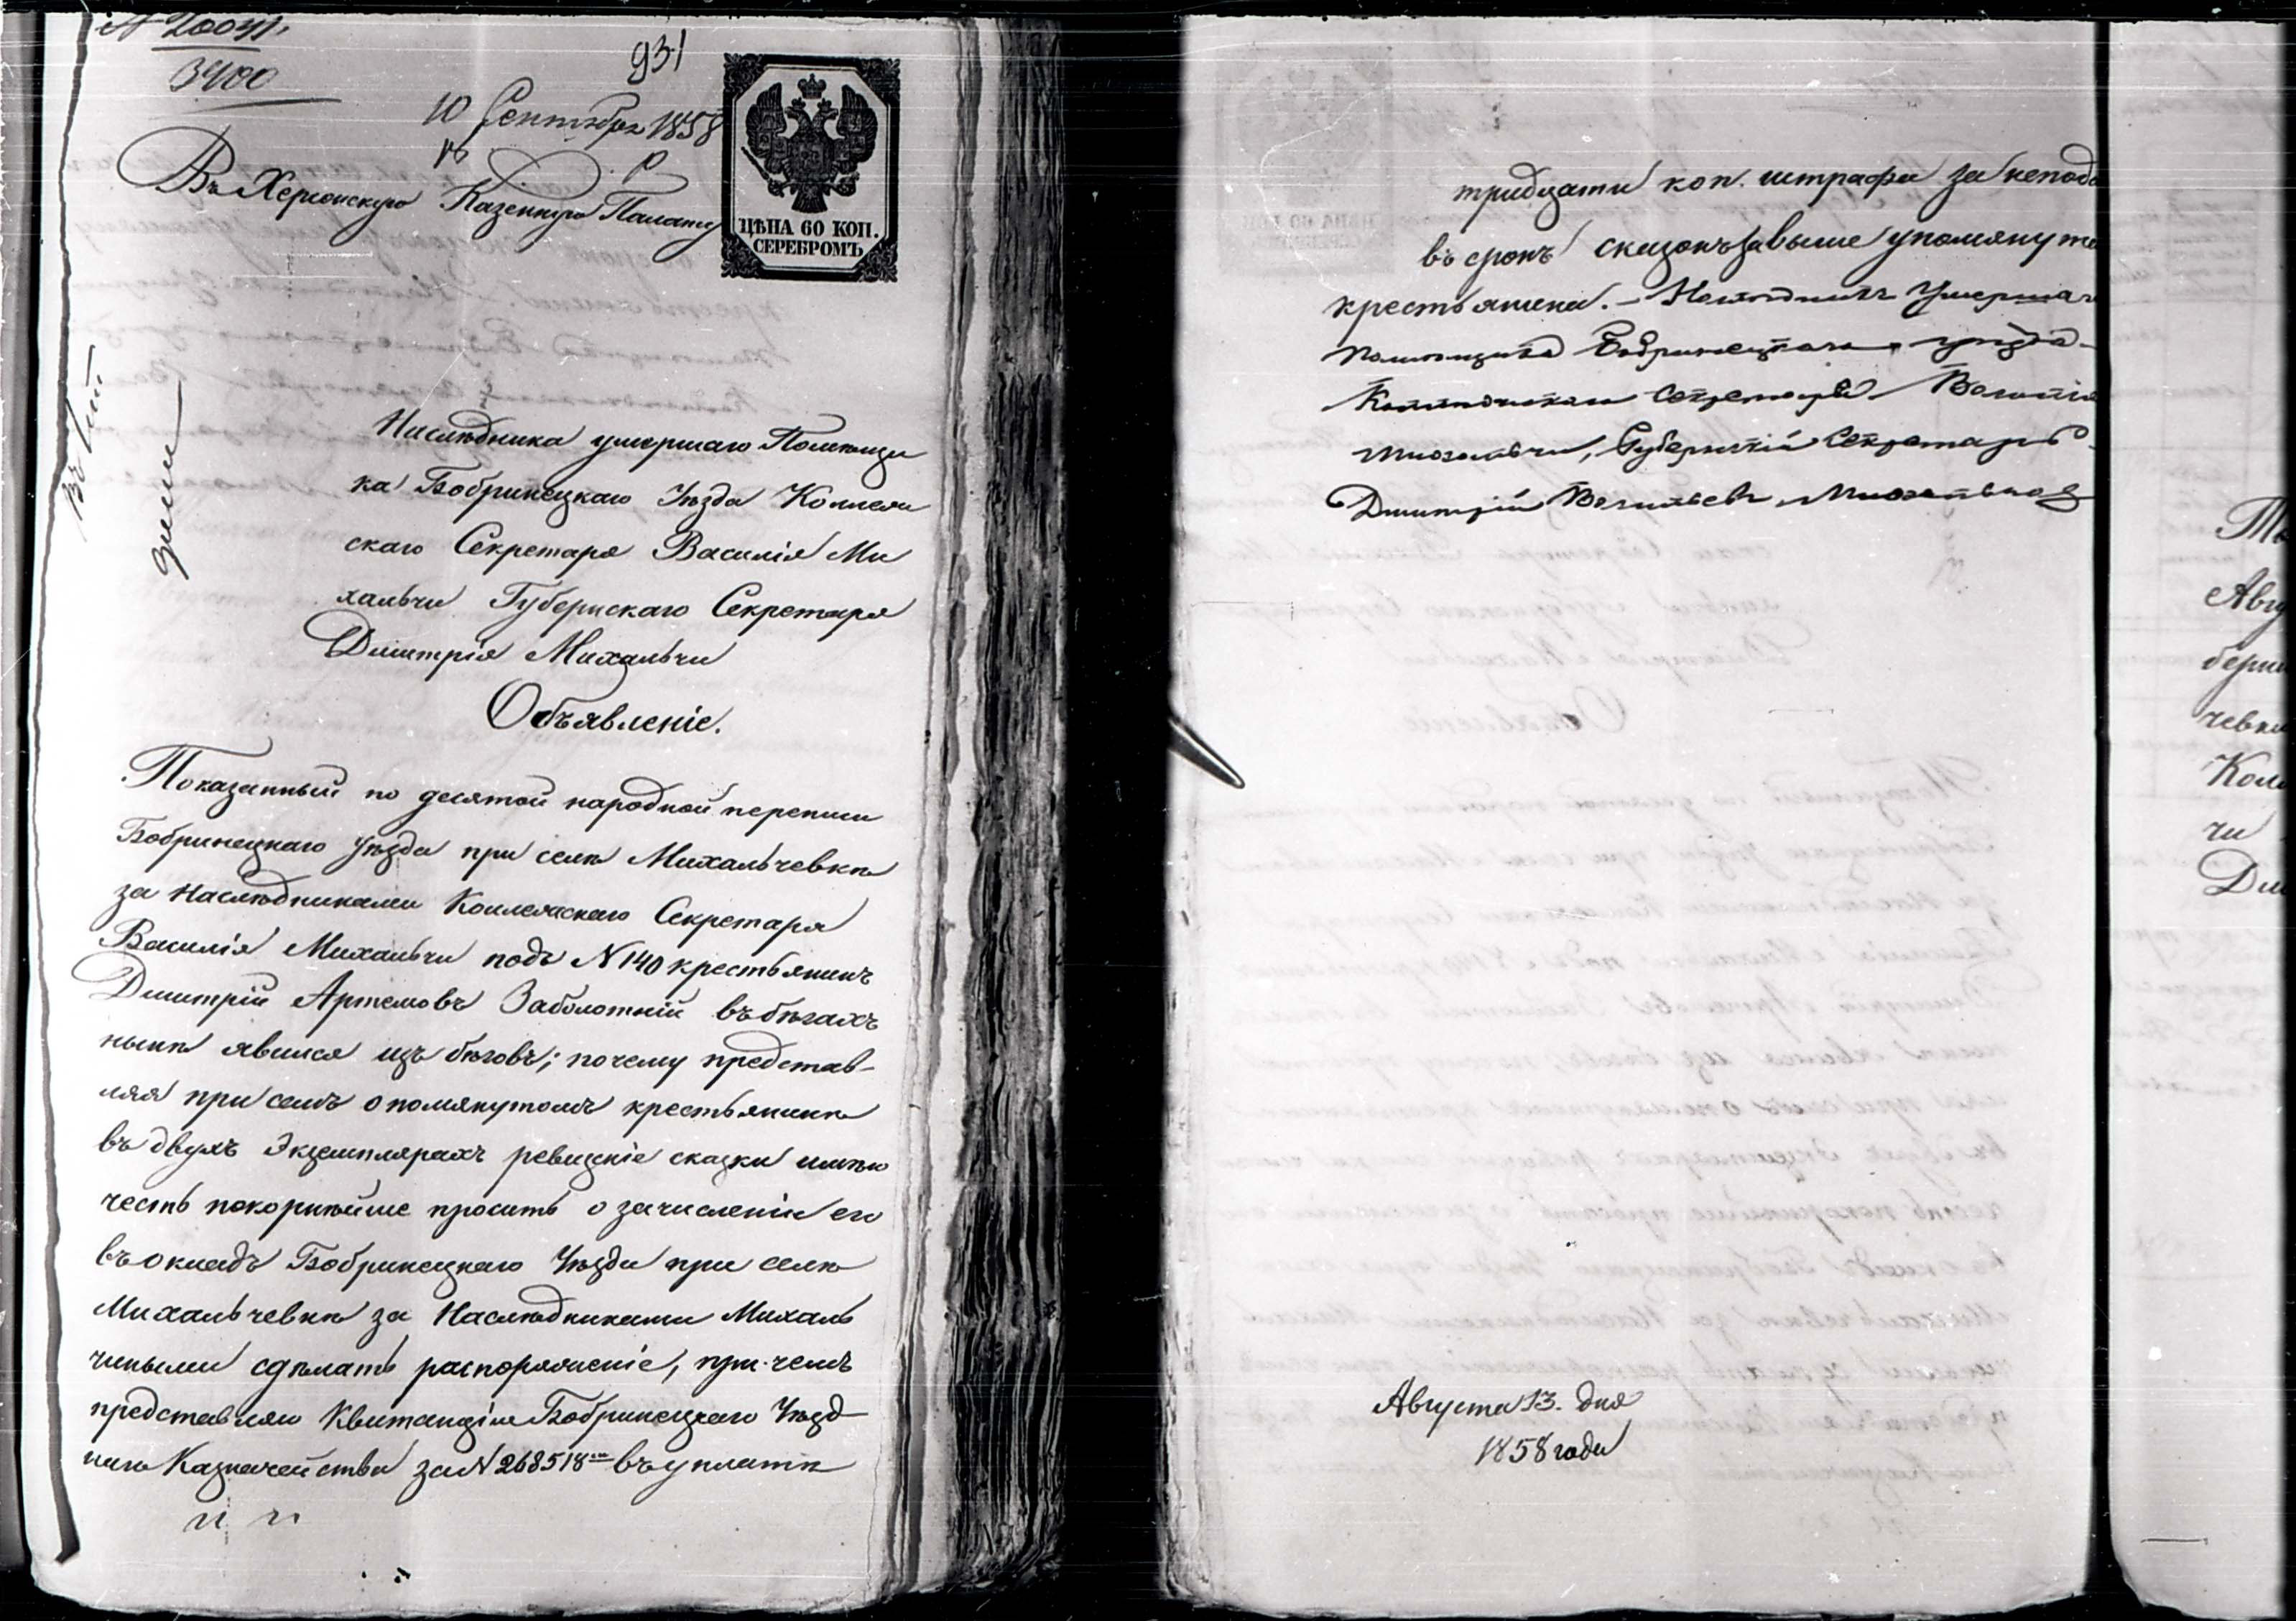 N 20041.
3400
931
10 Сентября 1858
Въ Херсонскую Казенную Палату
ЦѢНА 60 КОП.
СЕРЕБРОМЪ.
Наслѣдника умершаго Помѣщи
ка Бобринецкаго Уѣзда Коллеж
скаго Секретаря Василія Ми
хальчи Губернскаго Секретаря
Дмитрія Михальчи
Объявленіе.
Показанный по десятой народной переписи
Бобринецкаго Уѣзда при селѣ Михальчевкѣ
за Наслѣдниками Коллежскаго Секретаря
Василія Михальчи подъ N 140 крестьянинъ
Дмитрій Артемовъ Заболотній въ бѣгахъ
нынѣ явился изъ бѣговъ; почему представ-
ляя при семъ о помянутомъ крестьянинѣ
въ двухъ Экземплярахъ ревизкіе сказки имѣю
честь покорнѣйше просить о зачисленіи его
въ окладъ Бобринецкаго Уѣзда при селѣ
Михальчевкѣ за Наслѣдниками Михаль
чиными сдѣлать распоряженіе, при чемъ
представляю Квитанцію Бобринецкаго Уѣзд
наго Казначейства за N 268518 въ уплатѣ
тридцати коп. штрафа за непода
въ срокъ сказокъ за выше упомянута
крестьянина. — Наслѣдникъ Умершаг
Помѣщика Бобринецкаго уѣзда
Коллежскаго Секретаря Василія
Михальчи, Губернскій Секретарь
Дмитрій Васильевъ Михальча
Августа 13. дня
1858 года
Авгу
берн
чевк
Колл
чи
Дми